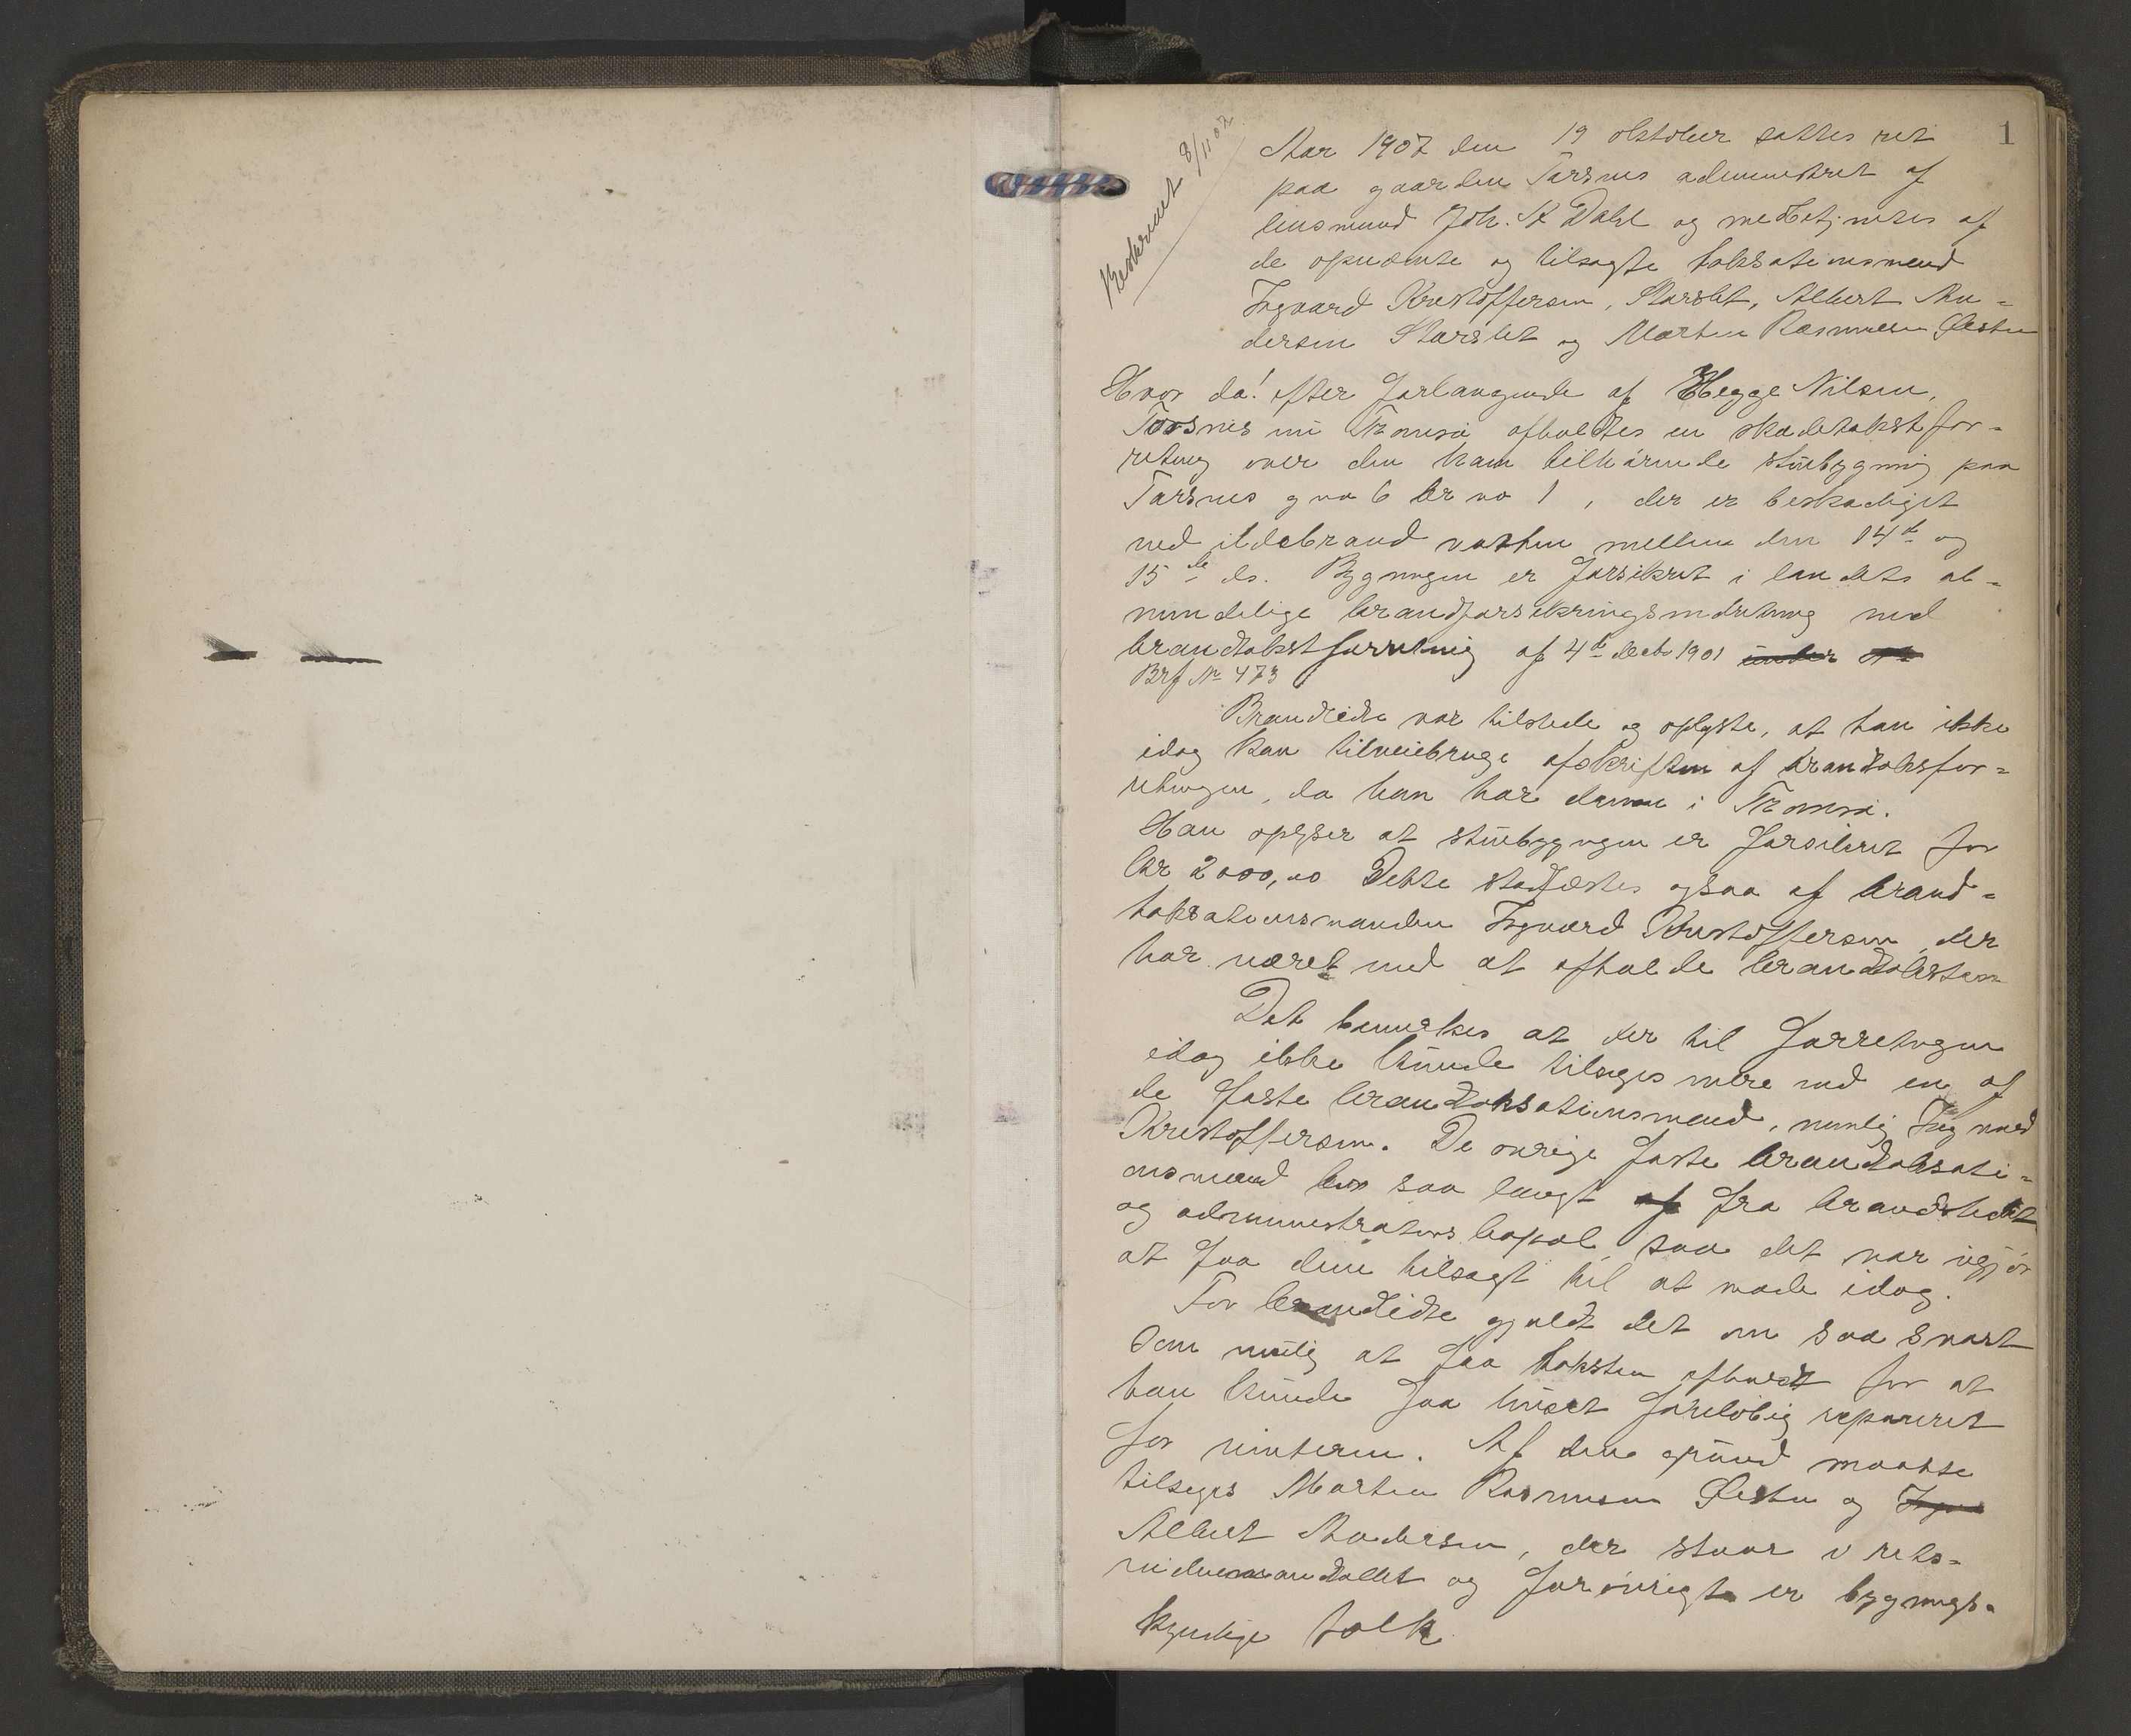 1
Beskrevet 8/11 07
Aar 1907 den 19 oktober sattes ret
paa gaarden Tarsnes administret af
lensmand Joh. K Dahl og medbetjentes af
de opnævnte og tilsagte taksationsmænd
Ingvard Kristoffersen, Storslet, Albert An-
dersen Storslet og Morten Rasmussen
Hvor da! efter Forlangende af Hegge Nilsen,
Torsnes nu Tromsø afholdtes en skadetakstfor-
retning over den ham tilhørende stuebygning paa
Tarsnes g no 6 br no 1, der er beskadiget
ved ildebrand natten mellem den 14de og
15de ds. Bygningen er Forsikret i landets al-
mindelige brandforsikringsindretning ved
brandtakstforretning af 4de decbr 1901
Brf No 473
Brandlidte var tilstede og oplyste, at han ikke
idag kan tilveiebringe afskriften af brandtaksfor-
retningen, da han har denne i Tromsø.
Han oplyser at stuebygningen er Forsikret for
kr 2000,00 Dette stadfæstes ogsaa af brand-
taksationsmanden Ingvard Kristoffersen, der
har været med at afholde brandtaksten
Det bemerkes at der til Forretningen
idag ikke kunde tilsiges mere end en af
de Faste brandtaksationsmænd, nemlig Ingvard
Kristoffersen. De øvrige Faste brandtaksati-
onsmænd bor saa langt af fra brandstedet
og administrators bopæl, saa det var ugjør
at Faa dem tilsagt til at møde idag.
For brandlidte gjaldt det om saa snart
som mulig at Faa taksten afholdt for at
han kunde Faa huset Foreløbig reparert
for vinteren. Af den grund maatte
tilsiges Morten Rasmussen og
Albert Andersen, der staar i rets-
vidnemandtallet og Forøvrigt er bygnings-
kyndige folk